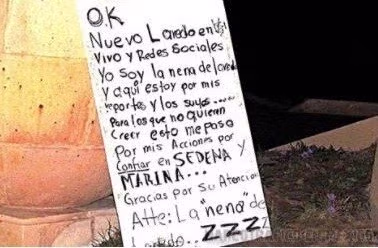 O.K
Nuevo Laredo en
Vivo y Redes Sociales
Yo Soy la nena de laredo
y aqui estoy por mis
reportes y los suyos....
Para los que no quieren
Creer esto me Paso
Por mis Acciones por
Confiar en SEDENA y
MARINA...
Gracias por su Atencion
Atte: La "nena" de
Laredo.. ZZZZ